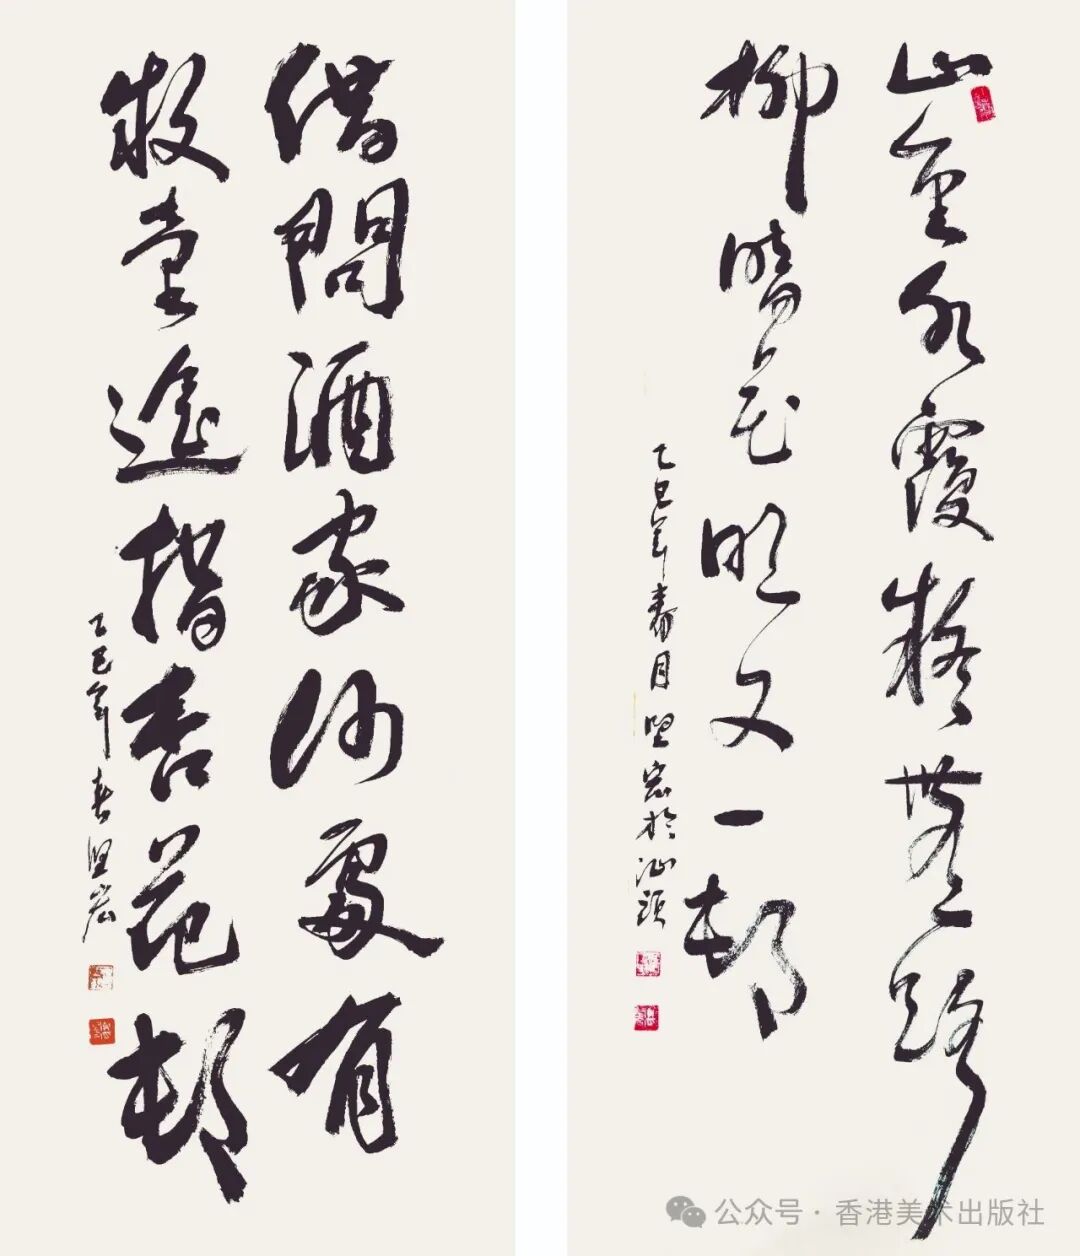 山重水覆疑無路
柳暗花明又一邨
乙巳年春月堅宏於汕頭
借問酒家何處有
牧童遙指杏花邨
乙巳年春堅宏
公众号·香港美术出版社